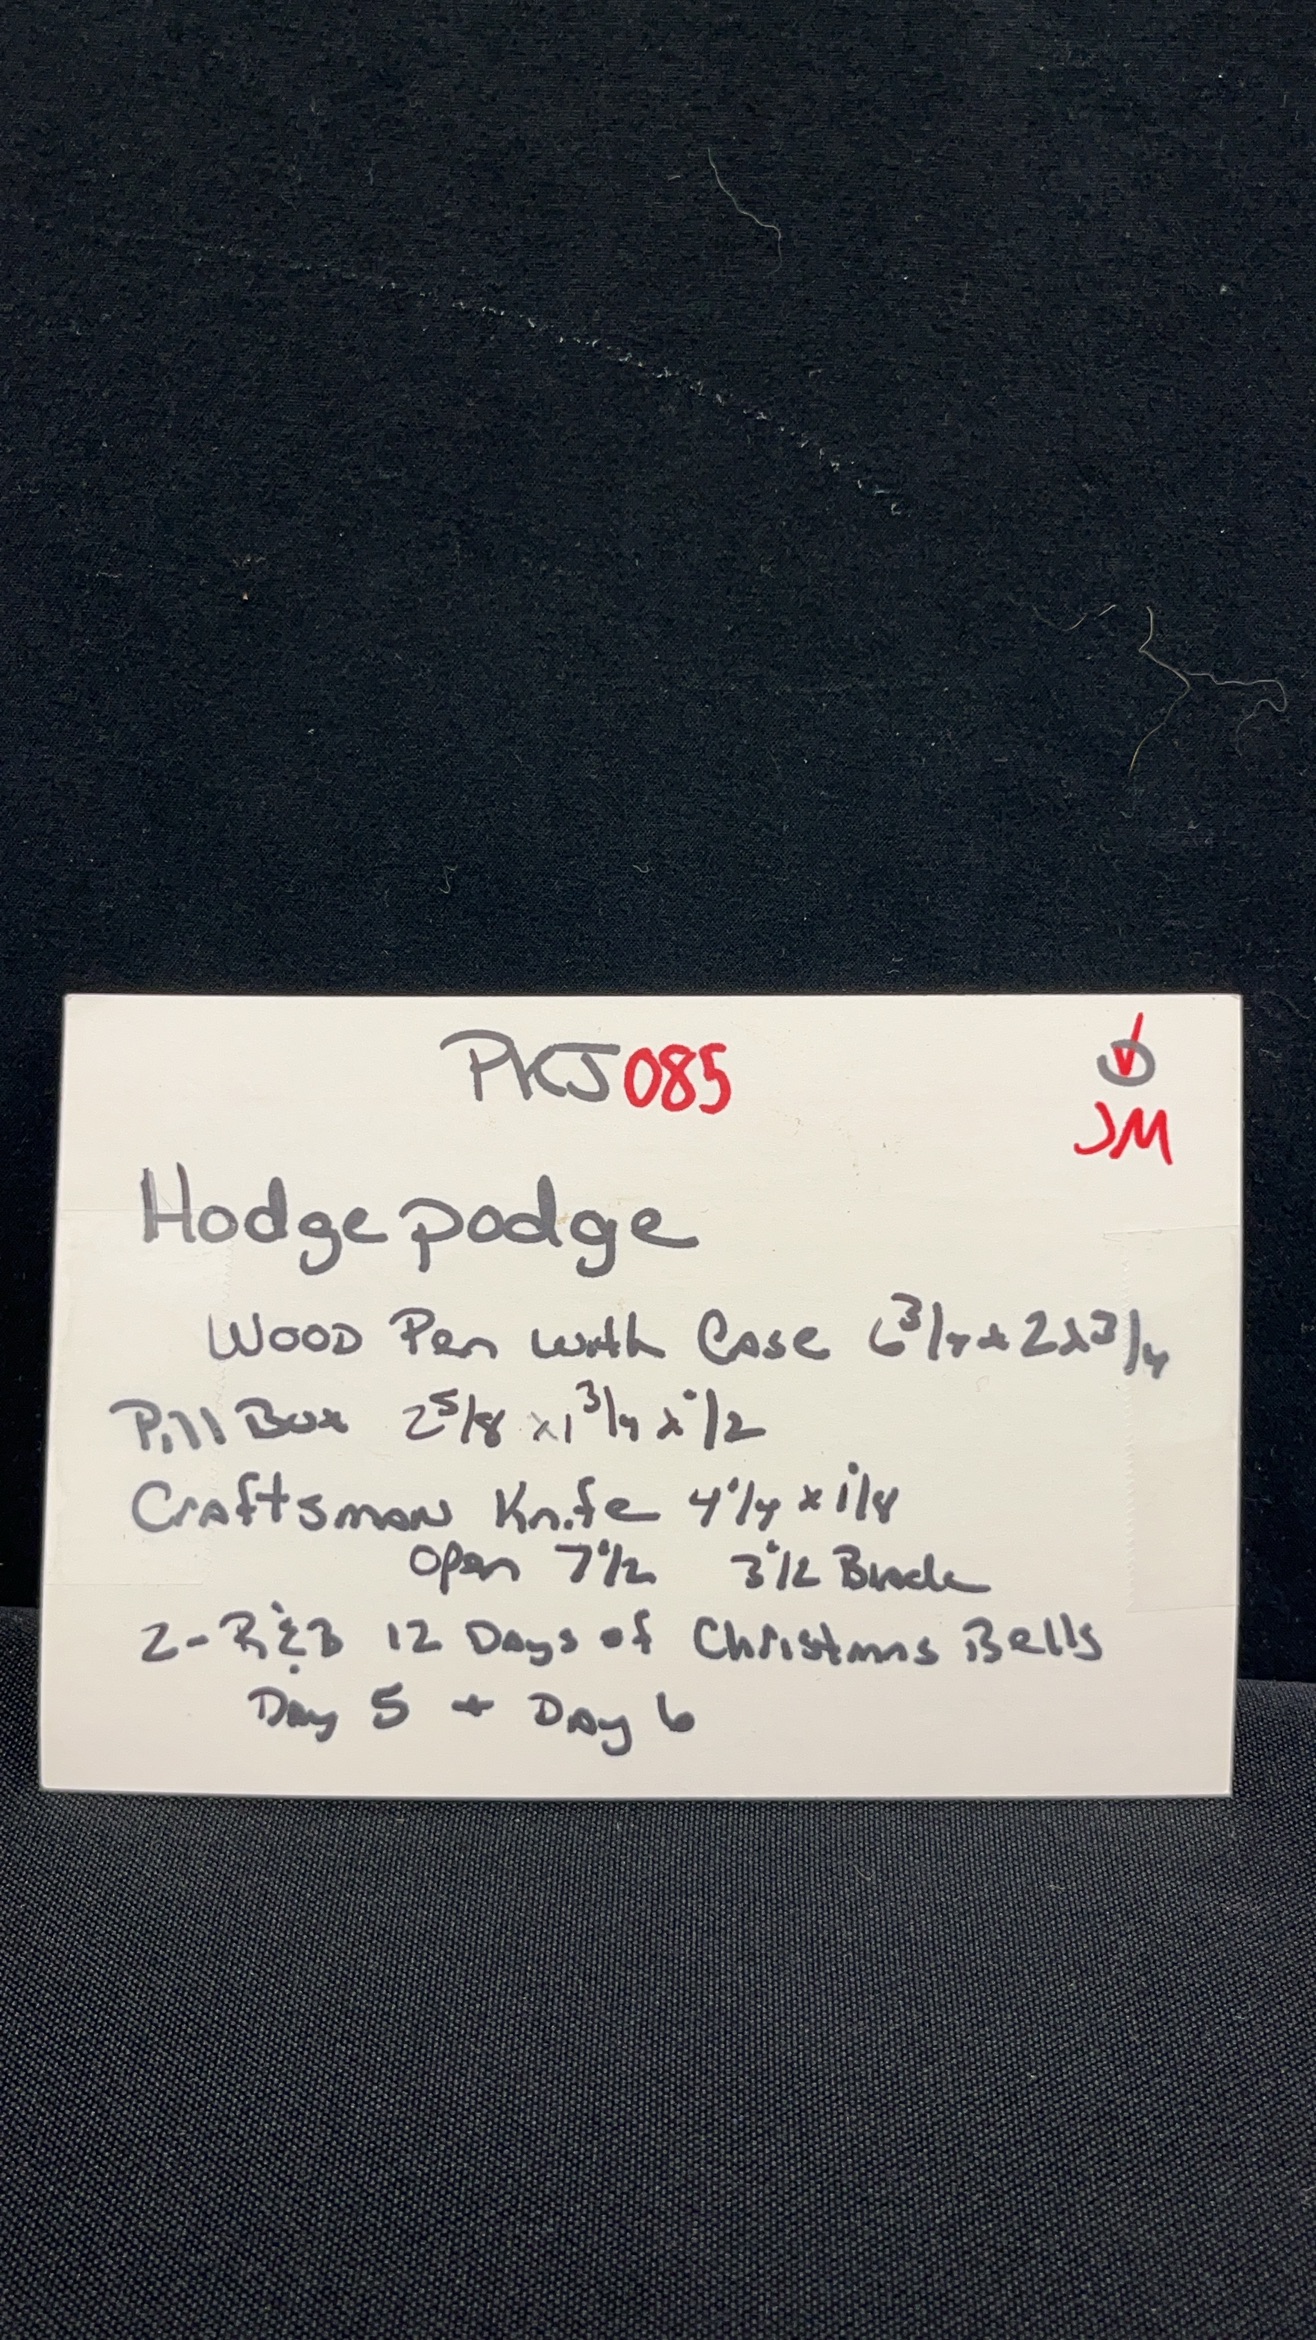 PKJ085
JM
Hodge podge
Wood Pen with Case 6 3/4 x 2 x 3/4
Pill Box 2 5/8 x 1 3/4 x 1/2
Craftsman Knife 4 1/4 x 1 1/8
Open 7 1/2 3 1/2 Blade
2-R&B 12 Days of Christmas Bells
Day 5 + Day 6